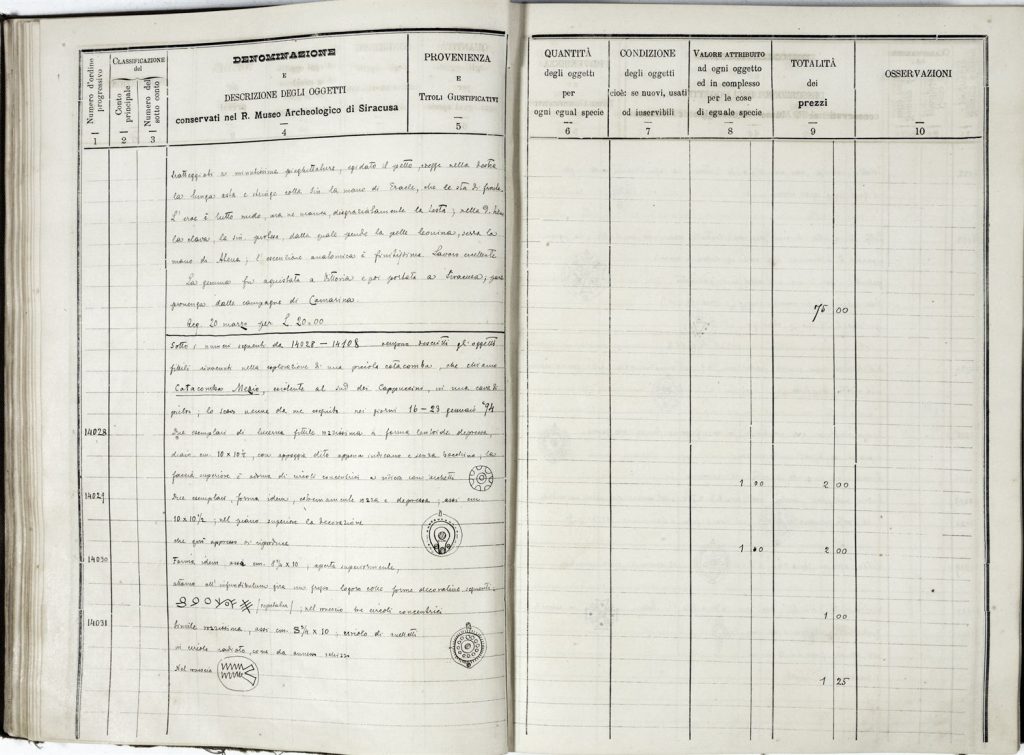 Numero d'ordine progressivo
1
CLASSIFICAZIONE del
Conto principale
2
Numero del sotto conto
3
DENOMINAZIONE
E
DESCRIZIONE DEGLI OGGETTI
conservati nel R. Museo Archeologico di Siracusa
4
PROVENIENZA
E
TITOLI GIUSTIFICATIVI
5
QUANTITÀ
degli oggetti
per
ogni egual specie
6
CONDIZIONE
degli oggetti
cioè: se nuovi, usati
od inservibili
7
VALORE ATTRIBUITO
ad ogni oggetto
ed in complesso
per le cose
di eguale specie
8
TOTALITÀ
dei
prezzi
9
OSSERVAZIONI
10
il petto, regge nella destra
la lunga asta e stringe colla sin. la mano di Eracle, che le sta di fronte.
L'eroe è tutto nudo, ma ne manca, disgraziatamente la testa; nella d. tiene
la clava, la sin. protesa, dalla quale pende la pelle leonina, serra la
mano di Atena; l'esecuzione anatomica è finitissima. Lavoro eccellente
La gemma fu acquistata a Vittoria e poi portata a Siracusa;
dalle campagne di Camarina
Acq. 20 marzo per L. 20.00
75 00
Sotto i numeri seguenti da 14028 - 14108 vengono descritti gl'oggetti
fittili rinvenuti nella esplorazione di una piccola catacomba, che chiamo
Catacomba esistente al sud dei Cappuccini, in una cava di
pietra; lo scavo venne da me eseguito nei giorni 16-23 gennaio '94
14028
Due esemplari di lucerna fittile rozzissima a forma lenticolare depressa,
diam. cm. 10 × 10½, con appoggia dito appena indicato e senza beccuccio, la
faccia superiore è adorna di circoli concentrici a rilievo con
1 00
2 00
14029
Due esemplari, forma idem, estremamente rozza e depressa; assi cm.
10 × 10½; nel piano superiore la decorazione
che qui appresso si riproduce
1 00
2 00
14030
Forma idem, assi cm. 8¾ × 10; aperta superiormente,
attorno all' gira un fregio logoro colle forme decorative seguenti
; nel rovescio tre circoli concentrici
1 00
14031
Simile rozzissima, assi cm. 8¾ × 10; circolo di
in circolo radiato, come da annesso schizzo
Nel rovescio
1 25